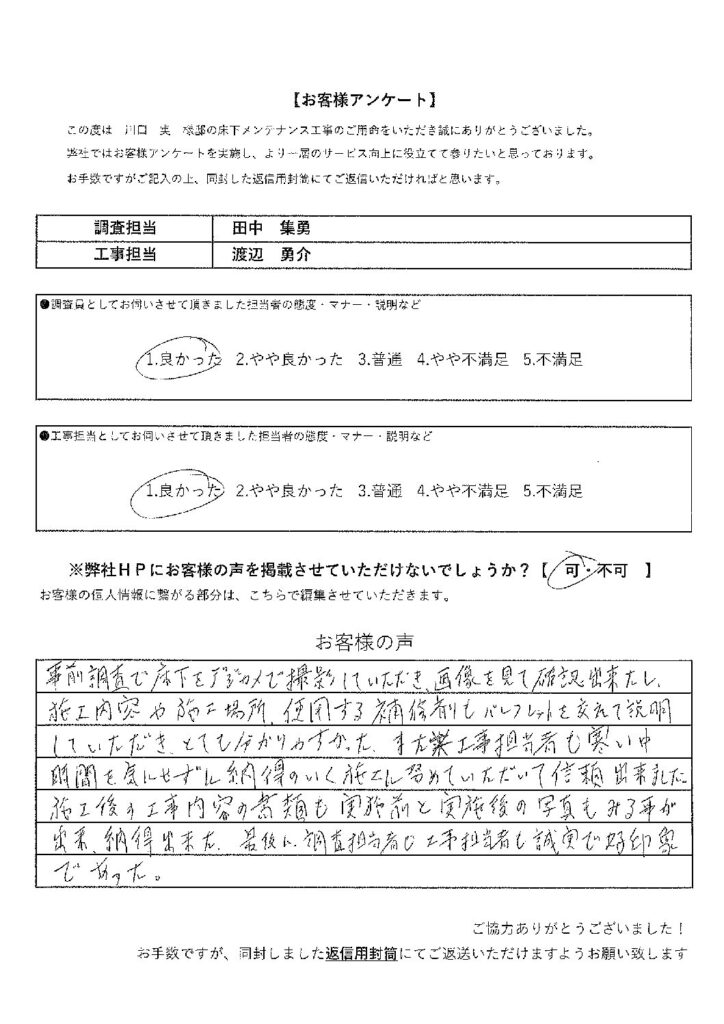 【お客様アンケート】
この度は 川口 実 様邸の床下メンテナンス工事のご用命をいただき誠にありがとうございました。
弊社ではお客様アンケートを実施し、より一層のサービス向上に役立てて参りたいと思っております。
お手数ですがご記入の上、同封した返信用封筒にてご返信いただければと思います。
調査担当 田中 集勇
工事担当 渡辺 勇介
●調査員としてお伺いさせて頂きました担当者の態度・マナー・説明など
1.良かった 2.やや良かった 3.普通 4.やや不満足 5.不満足
●工事担当としてお伺いさせて頂きました担当者の態度・マナー・説明など
1.良かった 2.やや良かった 3.普通 4.やや不満足 5.不満足
※弊社HPにお客様の声を掲載させていただけないでしょうか?【 可・不可 】
お客様の個人情報に繋がる部分は、こちらで編集させていただきます。
お客様の声
事前調査で床下をデジカメで撮影していただき、画像を見て確認出来たし、
施工内容や施工場所、使用する補修剤もパンフレットを交えて説明
していただき、とても分かりやすかった。また工事担当者も寒い中
時間を気にせずに納得のいく施工に努めていただいて信頼出来ました
施工後の工事内容の書類も実施前と実施後の写真もみる事が
出来、納得出来た。最後に調査担当者も工事担当者も誠実で好印象
であった。
ご協力ありがとうございました！
お手数ですが、同封しました返信用封筒にてご返送いただけますようお願い致します